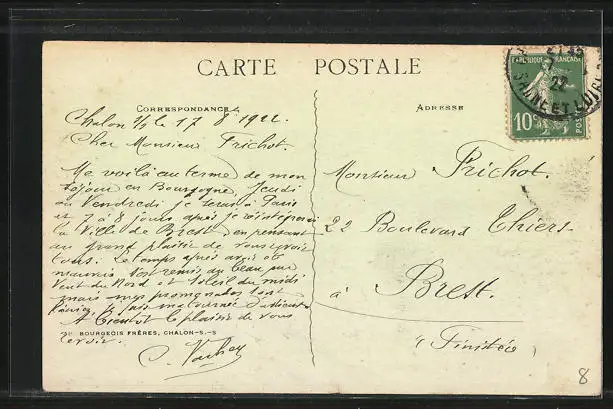 CARTE POSTALE
CORRESPONDANCE
ADRESSE
RÉPUBLIQUE FRANÇAISE
10c POSTES
SAONE ET LOIRE
22
Chalon s/s le 17 8 1922.
Cher Monsieur Frichot.
Me voilà au terme de mon
séjour en Bourgogne, Jeudi
ou Vendredi je serai à Paris
et 7 à 8 jours après je réintégrerai
la Ville de Brest en pensant
au grand plaisir de vous revoir
tous. Le temps après avoir été
mauvais s'est remis au beau par
vent du Nord et soleil du midi
mais mes promenades sont
A bientôt le plaisir de vous
revoir.
BOURGEOIS FRÈRES, CHALON-S.-S
Monsieur Frichot.
22 Boulevard Thiers
à Brest.
(Finistère
8